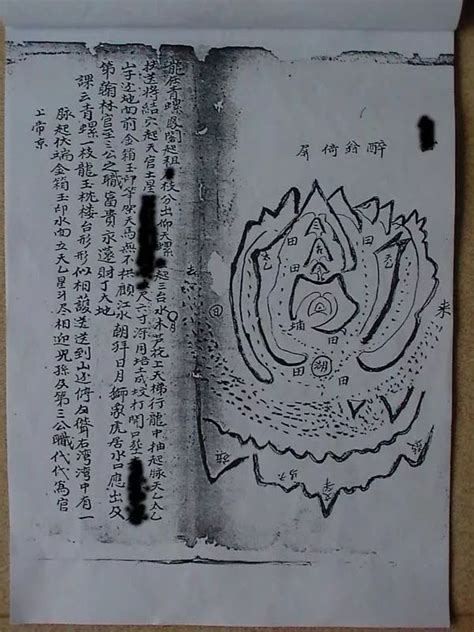 醉翁倚屏
龍從青螺鳳閣起祖枝分出仰天螺起三台水木芦花上天梯行龍中抽起脉天乙太乙
枝送將結穴起天官土星尺六寸深用培土成坟打開口
字近地面前金箱玉印等架天馬無不拱顧江水朝拜日月獅象虎居水口應出及
第翰林官至三公之職富貴永遠財丁大地
課云青螺一枝龍玉枕楼台形形似相護送送到山边石湾湾中有一
脉起伏端金箱玉印水面立天乙星斗尽相迎兒孫及第三公職代代為官
上帝京
来
去
田
田
田
田
田
埔
湖